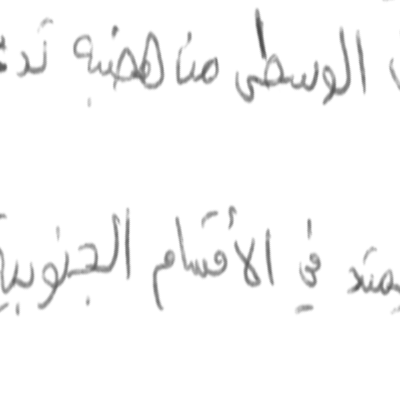 الوسطى من هضبه تد
يمتد في الأقسام الجنوبية